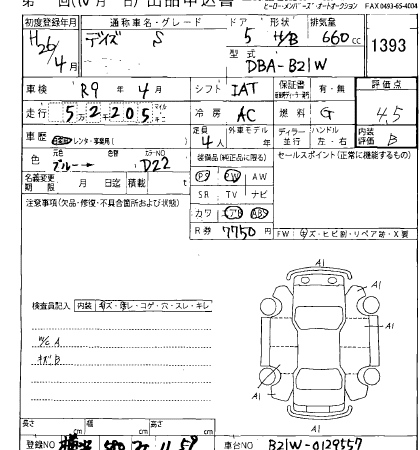 ヒーロー・メンバーズ・オートオークション FAX 0493-65-4004
初度登録年月 通称車名・グレード ドア 形状 排気量
H26/4月 デイズ S 5 H/B 660cc 1393
型式
DBA-B21W
車検 R9年4月 シフト IAT 保証書 有・無 評価点
走行 5万2205 マイル キロ 冷房 AC 燃料 G 4.5
車歴 レンタ・事業用( 定員 4人 外車モデル 年 ディーラー 並行 ハンドル 左・右 内装評価 B
色 元色 ブルー→ 色替 カラーNO D22 装備品(純正品に限る) セールスポイント(正常に機能するもの)
名義変更期限 月 日迄 積載 t PS PW AW
注意事項(欠品・修復・不具合箇所および状態) SR TV ナビ
カワ AB ABS
R券 7750円 FW キズ・ヒビ割・リペア跡・X要
検査員記入 内装 キズ・汚レ・コゲ・穴・スレ・キレ
A1
A1
A1
A1
A1
W/C A
キズB
長さ cm 幅 cm 高さ cm
登録NO 車台NO B21W-0129557